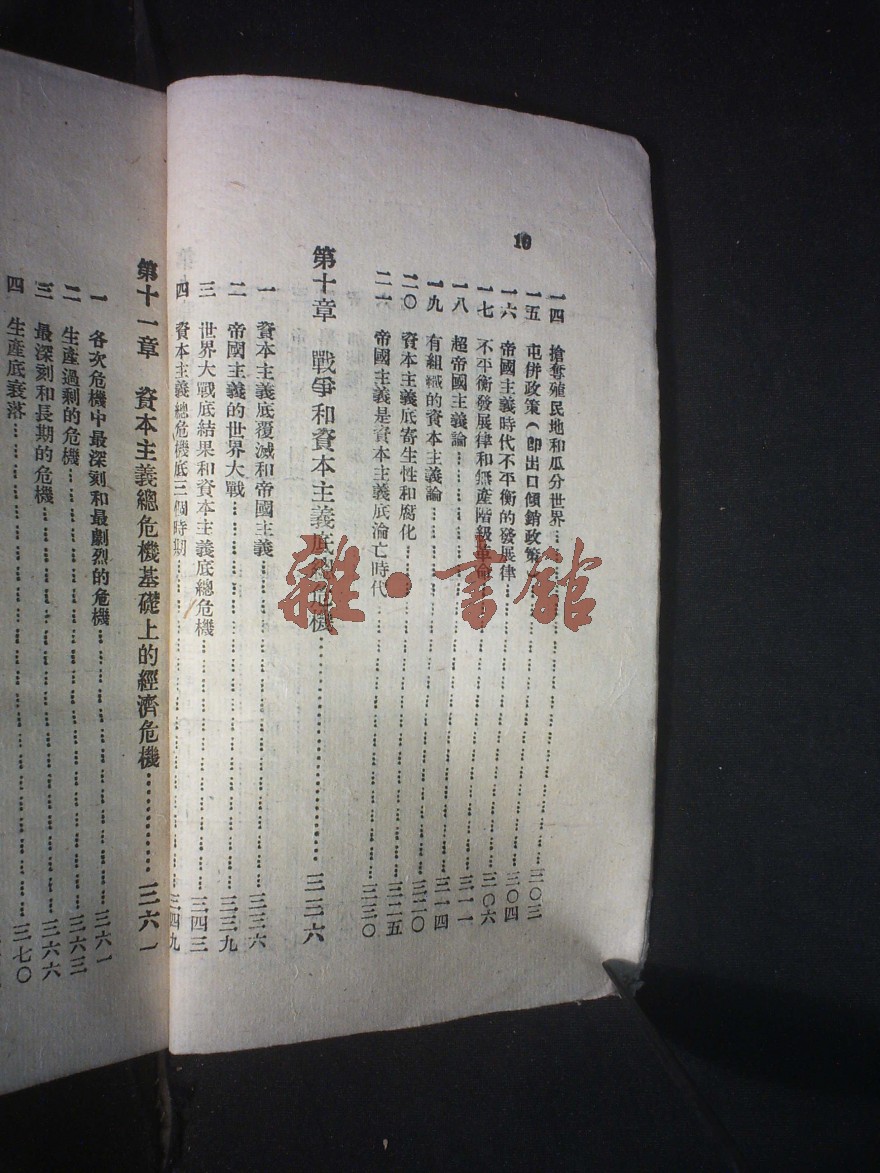 10
一四 搶奪殖民地和瓜分世界……三〇三
一五 屯併政策（卽出口傾銷政策……三〇四
一六 帝國主義時代不平衡的發展律……三〇六
一七 不平衡發展律和無產階級革命……三一一
一八 超帝國主義論……三一四
一九 有組織的資本主義論……三二〇
二〇 資本主義底寄生性和腐化……三二五
二一 帝國主義是資本主義底淪亡時代……三三〇
第十章 戰爭和資本主義底總危機……三三六
一 資本主義底覆滅和帝國主義……三三六
二 帝國主義的世界大戰……三三九
三 世界大戰底結果和資本主義底總危機……三四三
四 資本主義總危機底三個時期……三四九
第十一章 資本主義總危機基礎上的經濟危機……三六一
一 各次危機中最深刻和最劇烈的危機……三六一
二 生產過剩的危機……三六三
三 最深刻和長期的危機……三六六
四 生產底衰落……三七〇
雜·書館